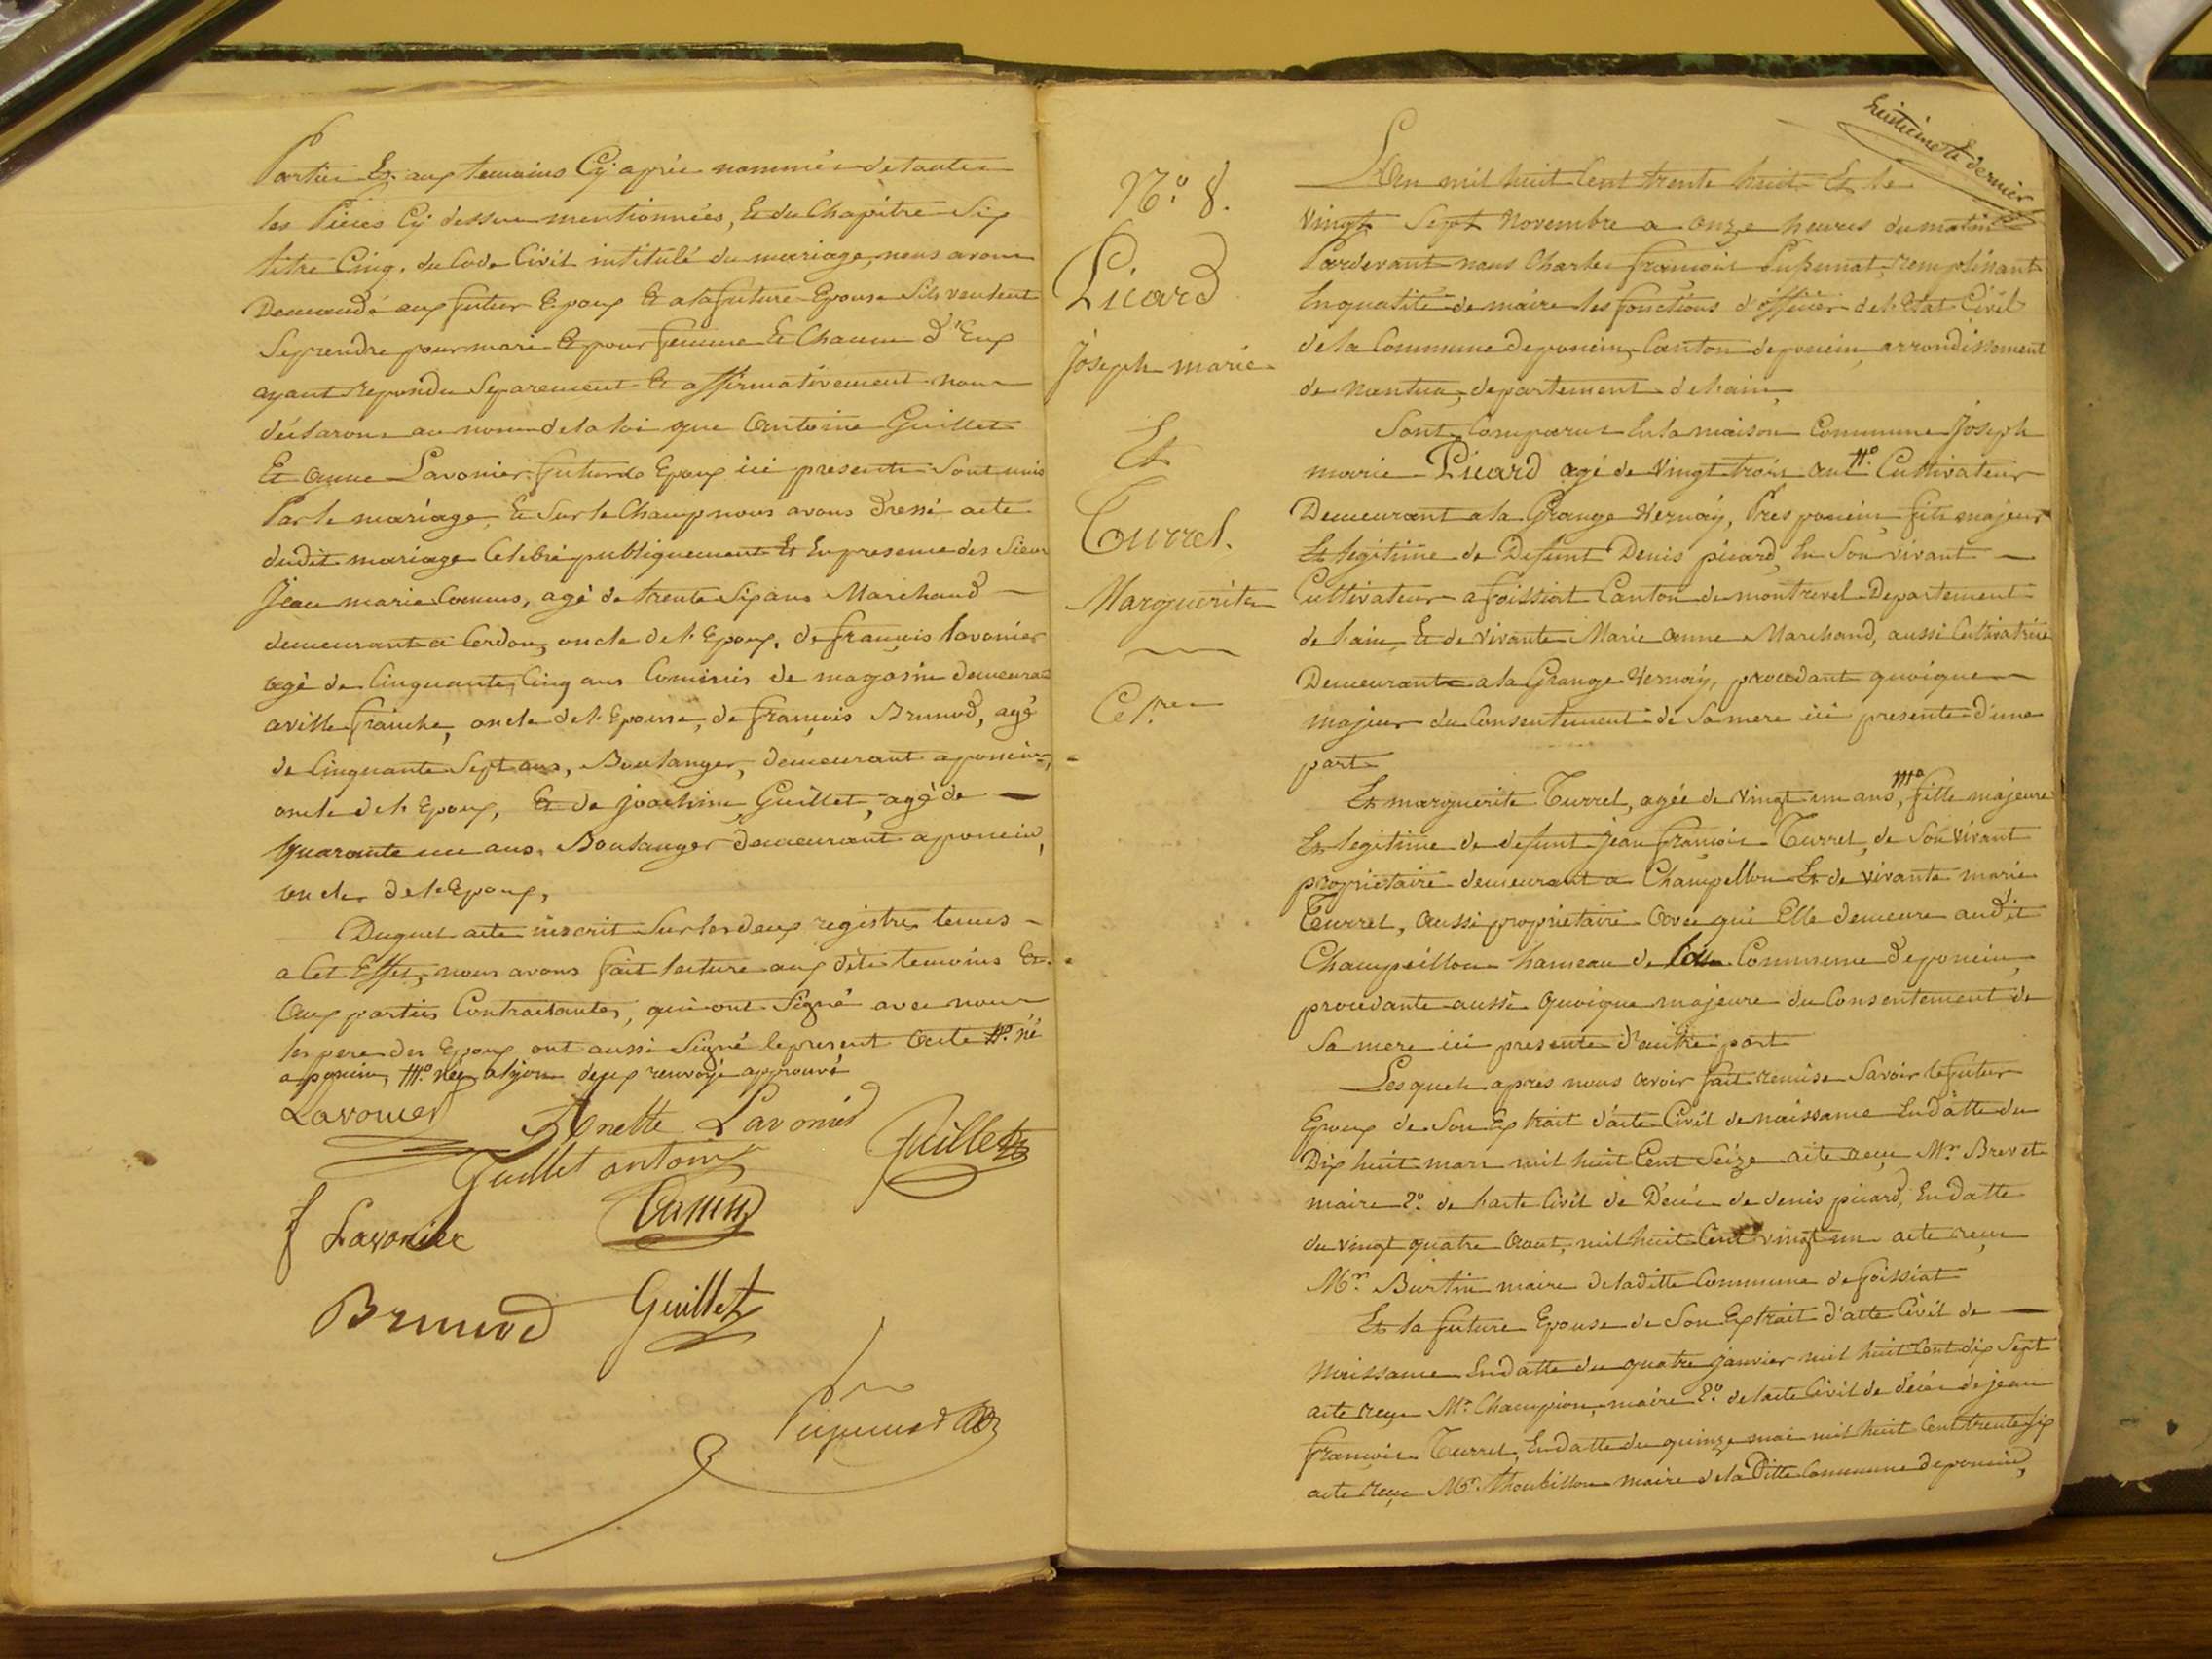 Parties Et aux temoins Cy après nommés de toutes
les Pieces Cy dessus mentionnées, Et du Chapitre Six
titre Cinq. du Code Civil intitulé du mariage, nous avons
Demandé aux futur Epoux Et a la future Epouse S'ils veulent
Se prendre pour mari Et pour femme Et Chacun d'Eux
ayant repondu Séparement Et affirmativement nous
déclarons au nom de la loi que Antoine Guillet
Et Anne Lavonier futurs Epoux ici presents Sont unis
Par le mariage, Et Sur le Champ nous avons dressé acte
dudit mariage Célébré publiquement Et En presence des Sieurs
Jean marie, agé de trente Six ans Marchand
demeurant a Cerdon, oncle de l'Epoux, de françois lavonier
agé de Cinquante Cinq ans Commis de magasin demeurant
a ville franche, oncle de l'Epouse, de françois Brunod, agé
de Cinquante Sept ans, Boulanger, demeurant a poncin,
oncle de l'Epoux, Et de joachim Guillet, agé de
quarante un ans, Boulanger demeurant a poncin,
oncle de l'Epoux,
Duquel acte inscrit Sur les deux registres tenus
a Cet Effet, nous avons fait lecture aux dits temoins Et
Aux parties Contractantes, qui ont Signé avec nous
les peres des Epoux ont aussi Signé le present Acte #° né
a poncin, ###° née a lyon deux renvoys approuvé
Lavonier Annette Lavonier
Guillet antoine Guillet
f Lavonier
Brunod Guillet
huitieme Et dernier
N.° 8.
Picard
Joseph marie
Et
Turrel.
Marguerite
L'An mil huit Cent trente huit Et le
Vingt Sept Novembre a onze heures du matin
Pardevant nous Charles françois remplissant
En qualité de maire les fonctions d'officier de l'Etat Civil
de la Commune de poncin, Canton de poncin, arrondissement
de Nantua, departement de l'ain,
Sont Comparus En la maison Commune Joseph
marie Picard agé de Vingt trois ans #° Cultivateur
Demeurant a la Grange Vernoiy, Pres poncin fils majeur
Et legitime de Defunt Denis picard, En Son vivant
Cultivateur a foissiat Canton de montrevel Departement
de l'ain, Et de Vivante Marie Anne Marchand, aussi Cultivatrice
Demeurante a la Grange Vernoiy, procedant quoique
majeur du Consentement de Sa mere ici presente d'une
part
Et marguerite Turrel, agée de Vingt un ans ###°, fille majeure
Et legitime de defunt jean françois Turrel, de Son Vivant
proprietaire demeurant a Champeillon Et de Vivante marie
Turrel, Aussi proprietaire Avec qui Elle demeure audit
Champeillon hameau de la Commune de poncin,
procedante aussi Quoique majeure du Consentement de
Sa mere ici presente d'autre part
Lesquels apres nous Avoir fait remise Savoir le futur
Epoux de Son Extrait d'acte Civil de naissance En datte du
Dix huit mars mil huit Cent Seize acte reçu M.r Brevet
maire 2.° de l'acte Civil de Décès de denis picard, En datte
du Vingt quatre Aout, mil huit Cent vingt un acte reçu
M.r Burtin maire de la ditte Commune de foissiat
Et la future Epouse de Son Extrait d'acte Civil de
Naissance En datte du quatre janvier mil huit Cent dix Sept
acte reçu M.r Champion, maire 2.° de l'acte Civil de décès de jean
françois Turrel, En datte du quinze mai mil huit Cent trente Six
acte reçu M.r maire de la Ditte Commune de poncin,